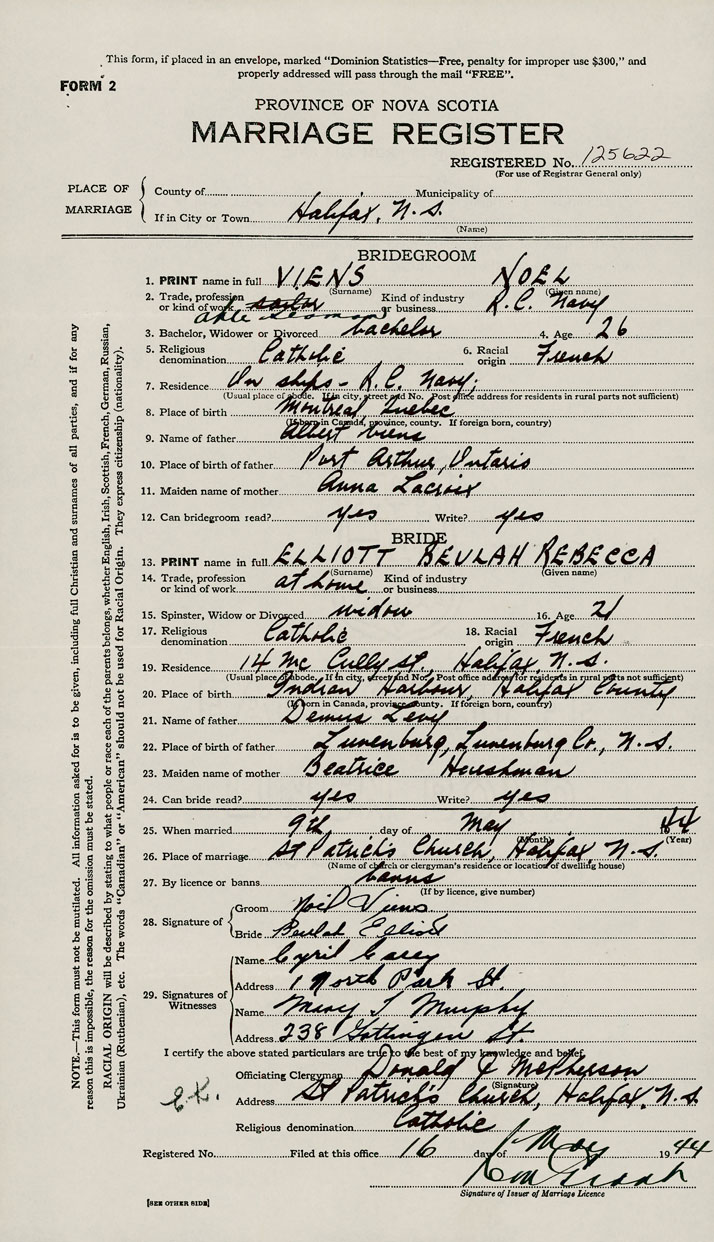 This form, if placed in an envelope, marked "Dominion Statistics—Free, penalty for improper use $300," and
properly addressed will pass through the mail "FREE".
FORM 2
PROVINCE OF NOVA SCOTIA
MARRIAGE REGISTER
REGISTERED No. 125622
(For use of Registrar General only)
PLACE OF MARRIAGE
County of Municipality of
If in City or Town Halifax, N.S.
(Name)
BRIDEGROOM
1. PRINT name in full VIENS NOEL
(Surname) (Given name)
2. Trade, profession or kind of work sailor able seaman Kind of industry or business R.C. Navy
3. Bachelor, Widower or Divorced bachelor 4. Age 26
5. Religious denomination Catholic 6. Racial origin French
7. Residence On ships - R.C. Navy;
(Usual place of abode. If in city, street and No. Post office address for residents in rural parts not sufficient)
8. Place of birth Montreal, Quebec
(If born in Canada, province, county. If foreign born, country)
9. Name of father Albert Viens
10. Place of birth of father Port Arthur, Ontario
11. Maiden name of mother Anna Lacroix
12. Can bridegroom read? yes Write? yes
BRIDE
13. PRINT name in full ELLIOTT BEULAH REBECCA
(Surname) (Given name)
14. Trade, profession or kind of work at home Kind of industry or business
15. Spinster, Widow or Divorced widow 16. Age 21
17. Religious denomination Catholic 18. Racial origin French
19. Residence 14 Mc Cully St., Halifax, N.S.
(Usual place of abode. If in city, street and No. Post office address for residents in rural parts not sufficient)
20. Place of birth Indian Harbour, Halifax County
(If born in Canada, province, county. If foreign born, country)
21. Name of father Demus Levy
22. Place of birth of father Lunenburg, Lunenburg Co., N.S.
23. Maiden name of mother Beatrice
24. Can bride read? yes Write? yes
25. When married 9th day of May 1944
(Month) (Year)
26. Place of marriage St Patrick's Church, Halifax, N.S.
(Name of church or clergyman's residence or location of dwelling house)
27. By licence or banns banns
(If by licence, give number)
28. Signature of
Groom Noel Viens
Bride Beulah Elliott
29. Signatures of Witnesses
Name Cyril Carey
Address 1 North Park St.
Name Mary J Murphy
Address 238 Gottingen St.
I certify the above stated particulars are true to the best of my knowledge and belief.
Officiating Clergyman Donald J McPherson
(Signature)
Address St Patrick's Church, Halifax, N.S.
Religious denomination Catholic
Registered No. Filed at this office 16 day of May 1944
Signature of Issuer of Marriage Licence
[SEE OTHER SIDE]
NOTE.—This form must not be mutilated. All information asked for is to be given, including full Christian and surnames of all parties, and if for any
reason this is impossible, the reason for the omission must be stated.
RACIAL ORIGIN will be described by stating to what people or race each of the parents belongs, whether English, Irish, Scottish, French, German, Russian,
Ukrainian (Ruthenian), etc. The words "Canadian" or "American" should not be used for Racial Origin. They express citizenship (nationality).